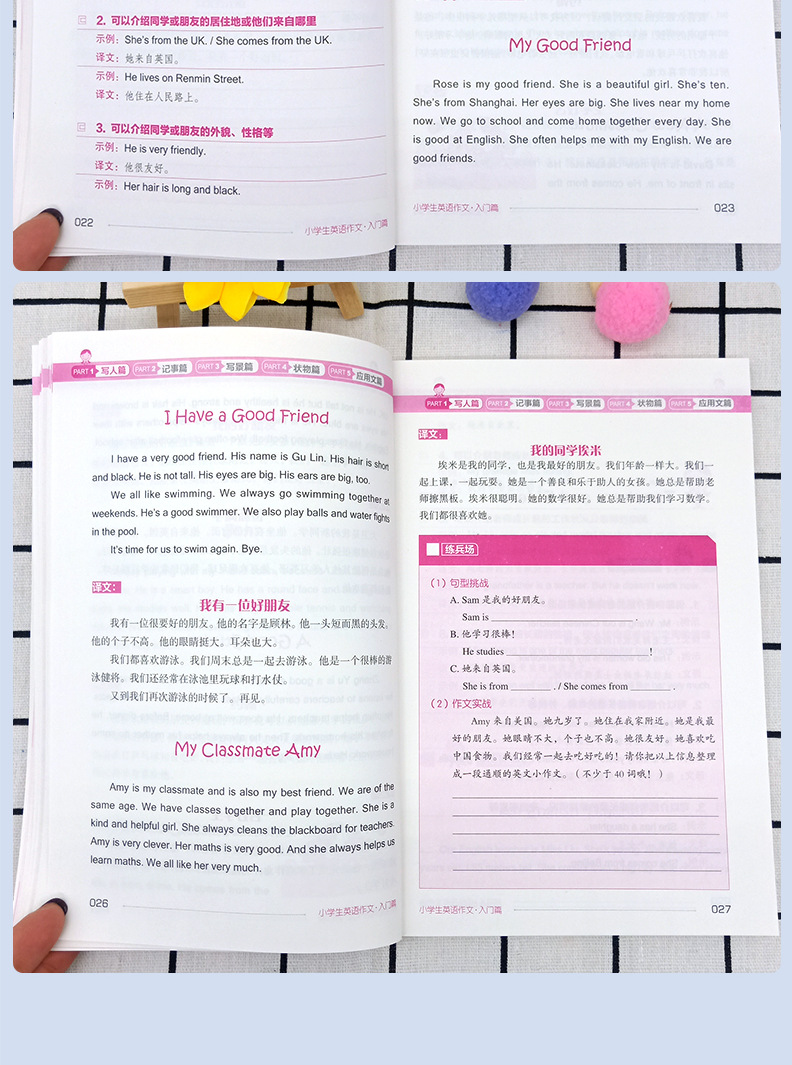 2. 可以介绍同学或朋友的居住地或他们来自哪里
示例：She's from the UK. / She comes from the UK.
译文：她来自英国。
示例：He lives on Renmin Street.
译文：他住在人民路上。
3. 可以介绍同学或朋友的外貌、性格等
示例：He is very friendly.
译文：他很友好。
示例：Her hair is long and black.
022
小学生英语作文·入门篇
My Good Friend
Rose is my good friend. She is a beautiful girl. She's ten.
She's from Shanghai. Her eyes are big. She lives near my home
now. We go to school and come home together every day. She
is good at English. She often helps me with my English. We are
good friends.
小学生英语作文·入门篇
023
PART 1 写人篇 PART 2 记事篇 PART 3 写景篇 PART 4 状物篇 PART 5 应用文篇
I Have a Good Friend
I have a very good friend. His name is Gu Lin. His hair is short
and black. He is not tall. His eyes are big. His ears are big, too.
We all like swimming. We always go swimming together at
weekends. He's a good swimmer. We also play balls and water fights
in the pool.
It's time for us to swim again. Bye.
译文：
我有一位好朋友
我有一位很要好的朋友。他的名字是顾林。他一头短而黑的头发。
他的个子不高。他的眼睛挺大。耳朵也大。
我们都喜欢游泳。我们周末总是一起去游泳。他是一个很棒的游
泳健将。我们还经常在泳池里玩球和打水仗。
又到我们再次游泳的时候了。再见。
My Classmate Amy
Amy is my classmate and is also my best friend. We are of the
same age. We have classes together and play together. She is a
kind and helpful girl. She always cleans the blackboard for teachers.
Amy is very clever. Her maths is very good. And she always helps us
learn maths. We all like her very much.
026
小学生英语作文·入门篇
PART 1 写人篇 PART 2 记事篇 PART 3 写景篇 PART 4 状物篇 PART 5 应用文篇
译文：
我的同学埃米
埃米是我的同学，也是我最好的朋友。我们年龄一样大。我们一
起上课，一起玩耍。她是一个善良和乐于助人的女孩。她总是帮助老
师擦黑板。埃米很聪明。她的数学很好。她总是帮助我们学习数学。
我们都很喜欢她。
练兵场
（1）句型挑战
A. Sam 是我的好朋友。
Sam is ____________________ .
B. 他学习很棒！
He studies ____________________ !
C. 她来自英国。
She is from ________ . / She comes from ________ .
（2）作文实战
Amy 来自美国。她九岁了。她住在我家附近。她是我最
好的朋友。她眼睛不大，个子也不高。她很友好。她喜欢吃
中国食物。我们经常一起去吃好吃的！请你把以上信息整理
成一段通顺的英文小作文。（不少于 40 词哦！）
小学生英语作文·入门篇
027